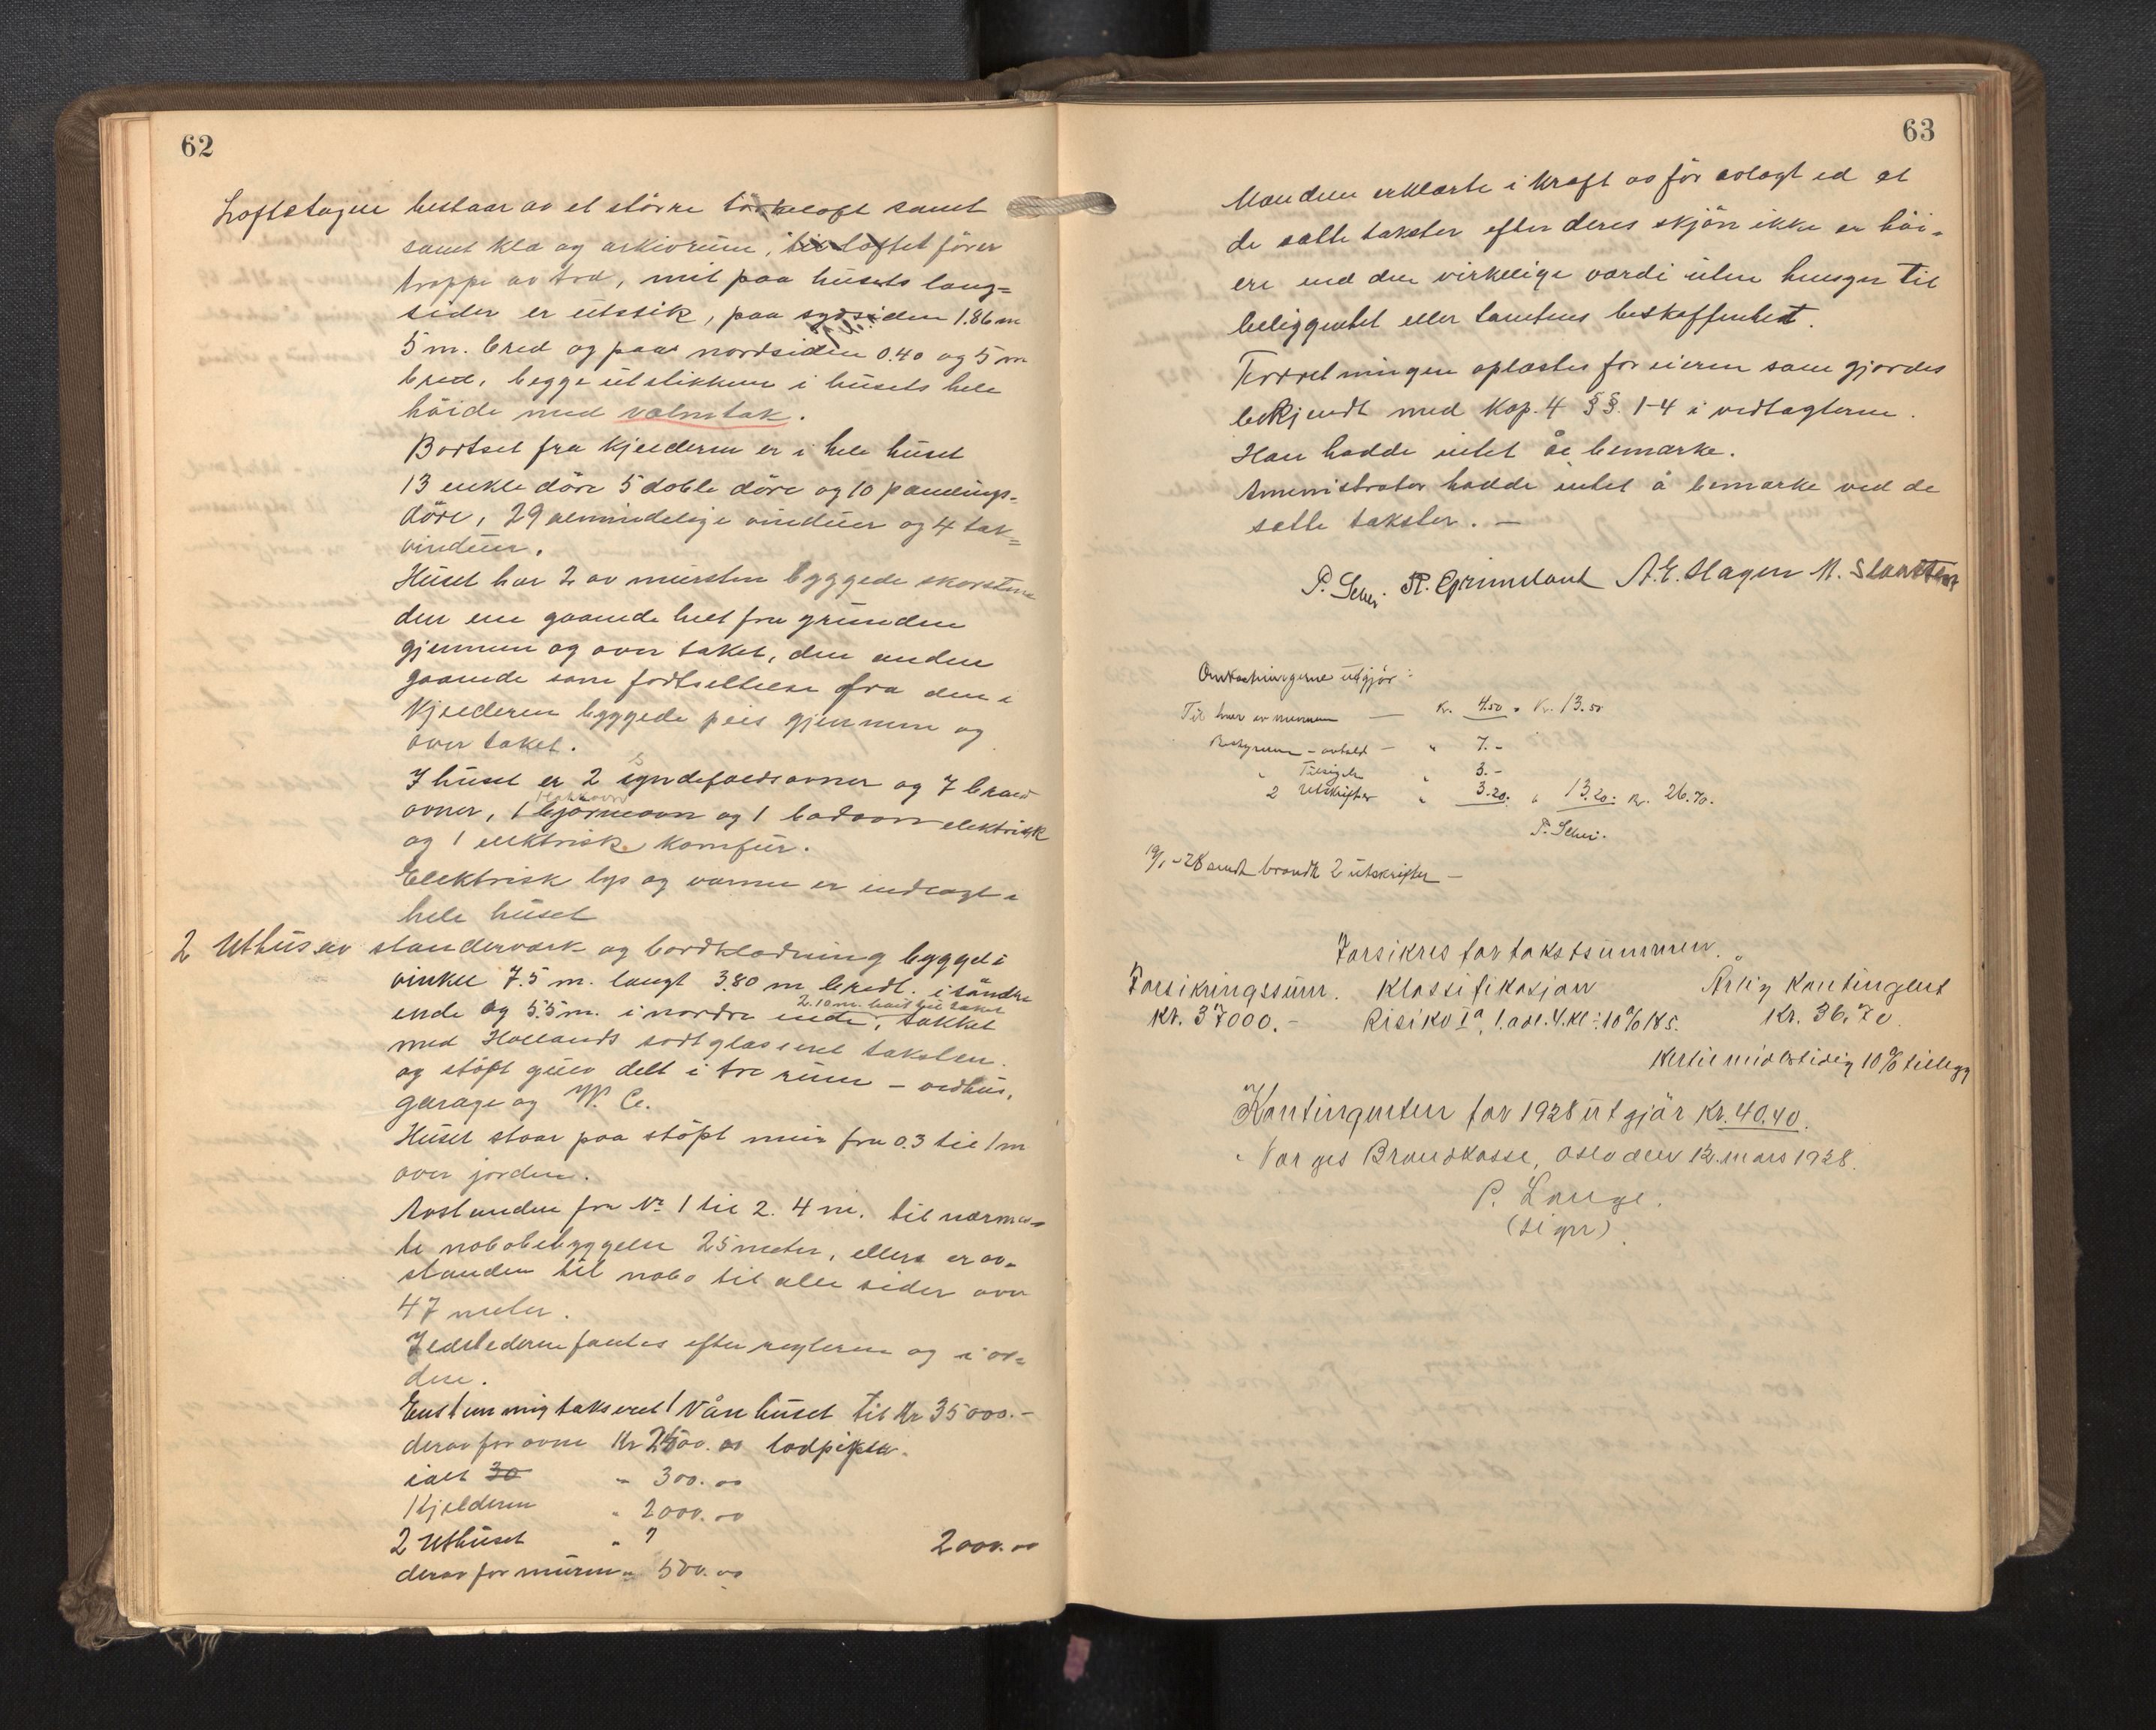 62
Loftetagen bestaar av et större törkeloft samt
samt kla og arkivrum, til loftet förer
trappe av træ, mit paa husets lang=
sider er utstik, paa sydsiden 1.86 m
5 m. bred og paa nordsiden 0.40 og 5 m
bred, begge utstikkene i husets hele
höide med valmtak.
Bortset fra Kjelderen er i hele huset
13 enkle döre 5 doble döre og 10 pandings=
döre, 29 almindelige vinduer og 4 tak=
vinduer.
Huset har 2 av mursten byggede skorstene
den ene gaaende helt fra grunden
gjennem og over taket, den anden
gaaende som fortsettelse fra den i
Kjelderen byggede peis gjennem og
over taket.
I huset er 2 ovner og 7
ovner, 1 og 1 badeovn elektrisk
og 1 elektrisk komfur.
Elektrisk lys og varme er indlagt i
hele huset
2 Uthus av standerverk og bordklædning bygget i
vinkel 7.5 m. langt 3.80 m bredt. i söndre
2.10 m. höit til taket
ende og 5.5 m. i nordre ende, takket
med Hollands sortglasseret taksten
og stöpt gulv delt i tre rum - vedhus,
garage og W. C.
Huset staar paa stöpt mur fra 0.3 til 1 m
over jorden.
Avstanden fra Nr. 1 til 2. 4 m. til nærmes=
te nabobebyggelse 25 meter, ellers er av=
standen til nabo til alle sider over
47 meter.
Ildstederne fantes efter reglerne og i or=
den.
Enstemmig taksert 1 Vånhuset til Kr 35000.-
derav for ovne Kr 2500. 00 lodpipen
ialt 30 " 300. 00
Kjelderen " 2000. 00
2 Uthuset " ? 2000. 00
derav for muren " 500. 00
63
Mændene erklærte i kraft av för avlagt ed at
de satte takster efter deres skjön ikke er höi=
ere end den virkelige værdi uten hensyn til
beliggenhet eller tomtens beskaffenhet.
Forretningen oplæstes for eieren som gjordes
bekjendt med Kap. 4 §§. 1-4 i vedtægterne.
Han hadde intet å bemærke.
Aministrator hadde intet å bemærke ved de
satte takster. -
P. Schei. R. Grimeland A. E. Hagen M.
Omkostningerne utgjör:
Til hver av mænnene — Kr. 4.50 = Kr. 13.50
Bestyreren - avhold - " 7. -
" Tilsigelse " 3. -
2 Utskrifter " 3.20. " 13.20: Kr. 26.70.
P. Schei.
19/1 - 28 sendt brandk. 2 utskrifter -
Forsikres for takstsummen.
Forsikringssum. Klassifikasjon Årlig Kontingent
Kr. 37000.- Risiko Ia, 1. avd. 4. kl ÷ 10 % 185. Kr. 36.70.
Hertil midlertidig 10 % tillegg
Kontingenten for 1928 utgjör Kr. 40.40.
Norges Brandkasse, Oslo den 12. mars 1928.
P. Lange.
(sign)